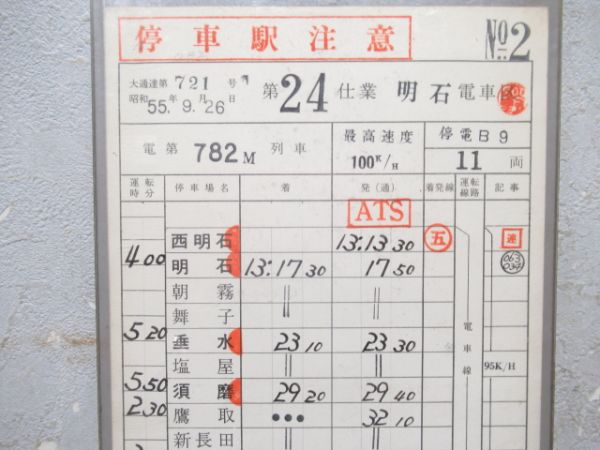 停車駅注意
No.2
大通達第721号
昭和55年9月26日
第24仕業 明石電車区
電第782M列車
最高速度
100K/H
停電B9
11両
運転時分 停車場名 着 発(通) 着発線 運転線路 記事
ATS
西明石 13:13 30 五 連
4 00
明石 13:17 30 17 50
朝霧 〃 〃
舞子 〃 〃
5 20
垂水 23 10 23 30
電車線
塩屋 〃 〃 95K/H
5 50
須磨 29 20 29 40
2 30
鷹取 ••• 32 10
新長田 〃 〃